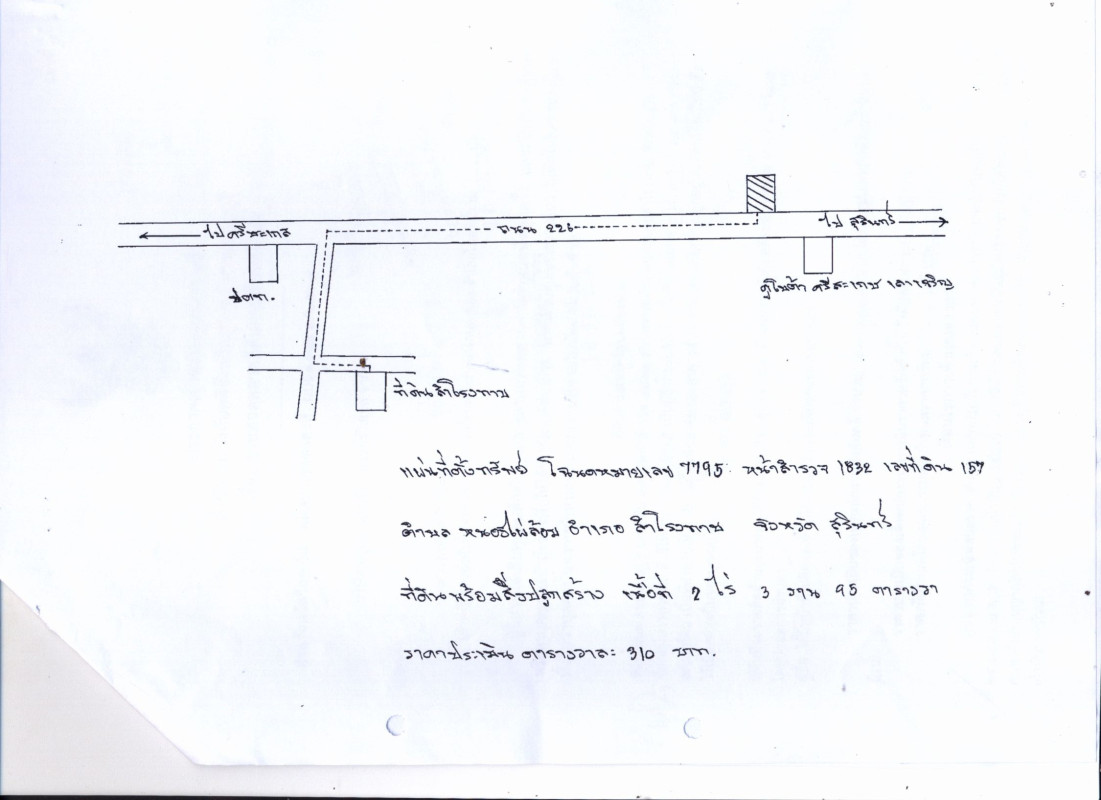 ไปศรีสะเกส
ถนน 226
ไป สุรินทร์
ปตท.
ที่ดินสำโรงทาบ
แผ่นที่ตั้งทรัพย์ โฉนดหมายเลข 7795 หน้าสำรวจ 1832 เลขที่ดิน 157
ตำบล หนองไผ่ล้อม อำเภอ สำโรงทาบ จังหวัด สุรินทร์
ที่ดินพร้อมสิ่งปลูกสร้าง เนื้อที่ 2 ไร่ 3 งาน 95 ตารางวา
ราคาประเมิน ตารางวาละ 310 บาท.